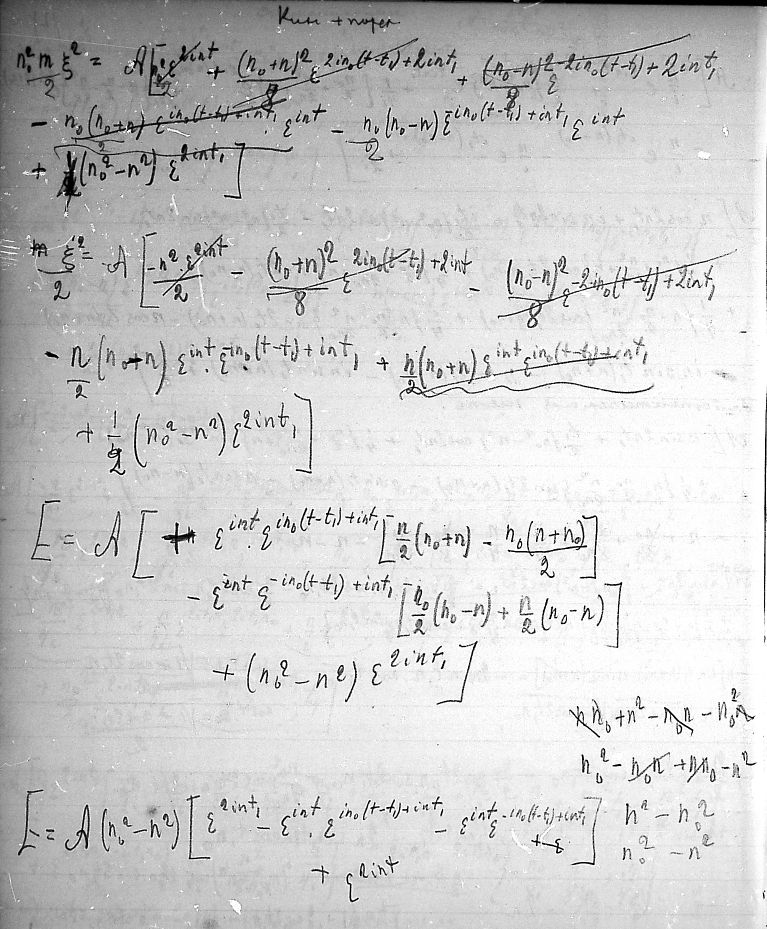 n₀² m/2 ξ² = A[n₀²ε^{2int}/2 + (n₀+n)²/8 ε^{2in₀(t-t₁)+2int₁} + (n₀-n)²/8 ε^{-2in₀(t-t₁)+2int₁}
- n₀(n₀+n)/2 ε^{in₀(t-t₁)+int₁} · ε^{int} - n₀/2 (n₀-n) ε^{-in₀(t-t₁)+int₁} ε^{int}
+ (n₀²-n²) ε^{2int₁}]
m/2 ξ̇² = A[-n²ε^{2int}/2 - (n₀+n)²/8 ε^{2in₀(t-t₁)+2int₁} - (n₀-n)²/8 ε^{-2in₀(t-t₁)+2int₁}
- n/2 (n₀+n) ε^{int} · ε^{-in₀(t-t₁)+int₁} + n/2 (n₀+n) ε^{int} · ε^{in₀(t-t₁)+int₁}
+ 1/2 (n₀²-n²) ε^{2int₁}]
E = A[+ ε^{int} · ε^{in₀(t-t₁)+int₁} [n/2 (n₀+n) - n₀(n+n₀)/2]
- ε^{int} ε^{-in₀(t-t₁)+int₁} [n₀/2 (n₀-n) + n/2 (n₀-n)]
+ (n₀²-n²) ε^{2int₁}]
n n₀ + n² - n₀n - n₀²
n₀² - n₀n + n n₀ - n²
E = A(n₀²-n²)[ε^{2int₁} - ε^{int} · ε^{in₀(t-t₁)+int₁} - ε^{int} ε^{-in₀(t-t₁)+int₁}] n² - n₀²
+ ε^{2int} n₀² - n²